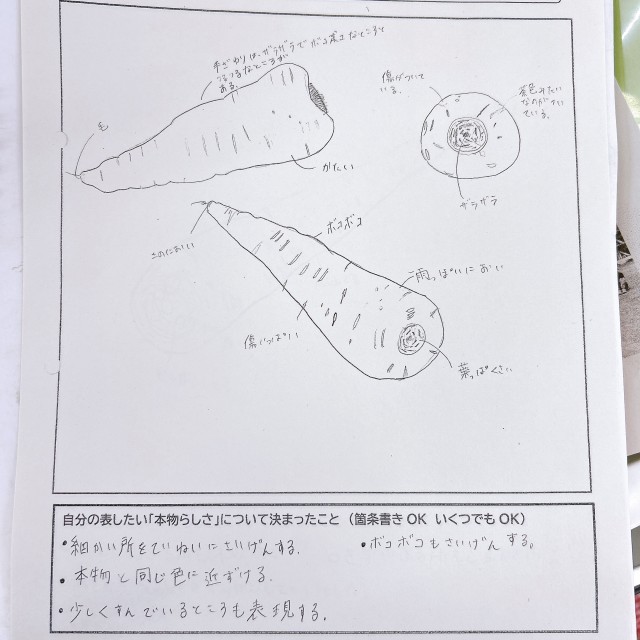 手ざわりは、ザラザラでボコボコなところと
つるつるなところが
ある。
毛
かたい
傷がついて
いる。
茶色みたい
なのがついている。
ザラザラ
土のにおい
ボコボコ
雨っぽいにおい
傷いっぱい
葉っぱくさい
自分の表したい「本物らしさ」について決まったこと（箇条書き OK いくつでも OK）
・細かい所をていねいにさいげんする。
・ボコボコもさいげんする。
・本物と同じ色に近ずける。
・少しくすんでいるところも表現する。